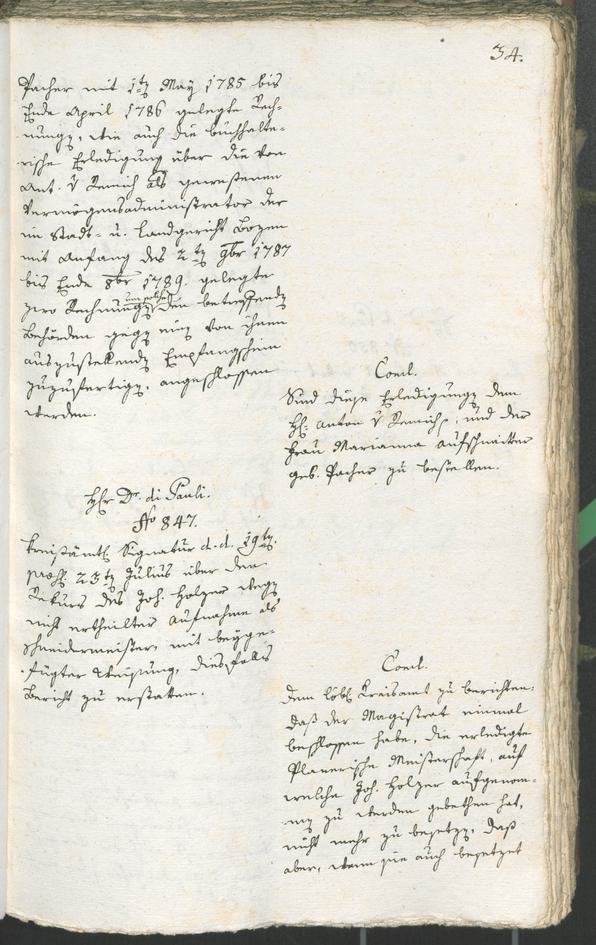 34.
Pacher mit 1ten May 1785 bis
Ende April 1786 gelegte Rech-
nungen, wie auch die buchhalte-
rische Erledigung über die von
Ant. v Remich als gewesenen
Vermögensadministrator der
im Stadt- u. Landgericht Bozen
mit Anfang des 2ten 9br 1787
bis Ende 8br 1789. gelegte
zwo Rechnungen den betreffenden
Behörden gegen von ihnen
auszustellenden Empfangschein
zuzufertigen, angeschlossen
werden.
Concl.
Sind diese Erledigungen dem
H: Anton v Remich, und der
Frau Marianna Aufschnaitter
geb. Pacher zu bestellen.
Hr Dr. di Pauli.
No 847.
Kreisämtl Signatur d. d. 19ten
praes. 23ten Julius über den
Rekurs des Joh. Holzer wegen
nicht ertheilter Aufnahme als
Schneidermeister, mit beyge-
fügter Weisung, diesfalls
Bericht zu erstatten.
Concl.
Dem löbl Kreisamt zu berichten:
daß der Magistrat einmal
beschlossen habe, die erledigte
Planerische Meisterschaft, auf
welche Joh. Holzer aufgenom-
men zu werden gebethen hat,
nicht mehr zu besetzen, daß
aber, wenn sie auch besetzet